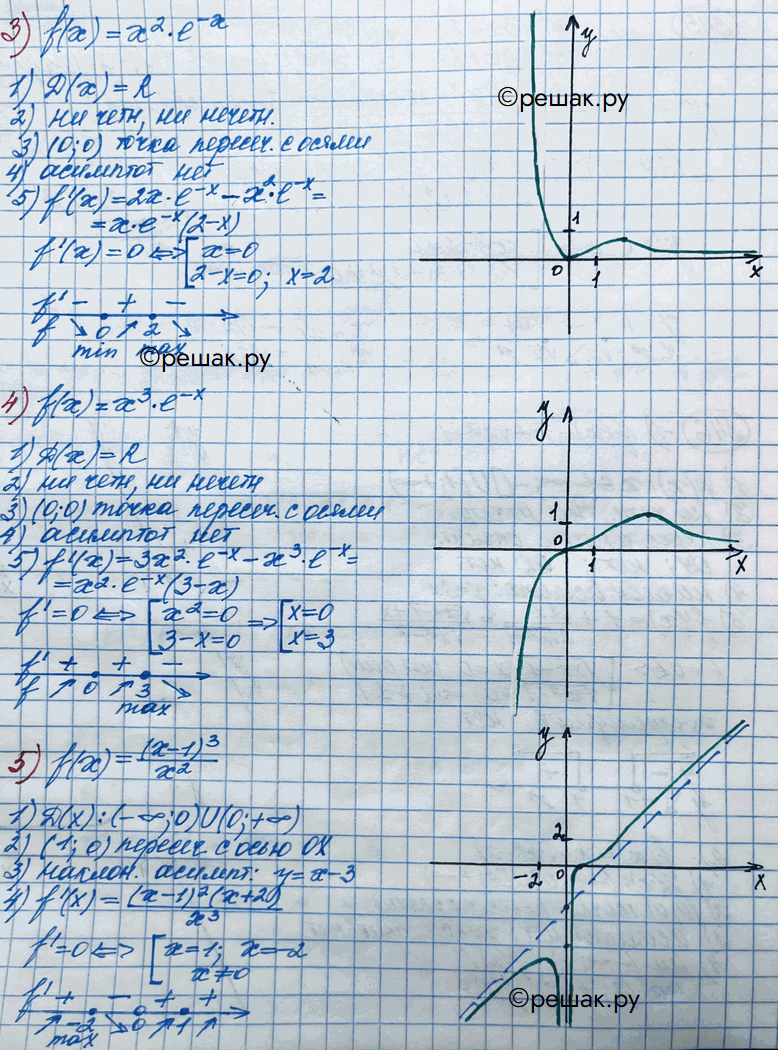 3) f(x) = x²·e⁻ˣ
1) D(x) = R
2) ни четн, ни нечетн.
3) (0;0) точка пересеч. с осями
4) асимптот нет
5) f'(x) = 2x·e⁻ˣ − x²·e⁻ˣ =
= x·e⁻ˣ(2−x)
f'(x) = 0 ⇔ [ x=0
2−x=0; x=2
f' − + −
f ↘ 0 ↗ 2 ↘
min max
©решак.ру
y
©решак.ру
1
0 1 x
4) f(x) = x³·e⁻ˣ
1) D(x) = R
2) ни четн, ни нечетн
3) (0;0) точка пересеч. с осями
4) асимптот нет
5) f'(x) = 3x²·e⁻ˣ − x³·e⁻ˣ =
= x²·e⁻ˣ(3−x)
f' = 0 ⇔ [ x²=0 ⇒ [ x=0
3−x=0 x=3
f' + + −
f ↗ 0 ↗ 3 ↘
max
y
1
0 1 x
5) f(x) = (x−1)³/x²
1) D(x): (−∞;0)U(0;+∞)
2) (1; 0) пересеч. с осью OX
3) наклон. асимпт: y = x−3
4) f'(x) = (x−1)²(x+2)/x³
f' = 0 ⇔ [ x=1; x=−2
x≠0
f' + − + +
↗ −2 ↘ 0 ↗ 1 ↗
max
y
2
−2 0 x
©решак.ру